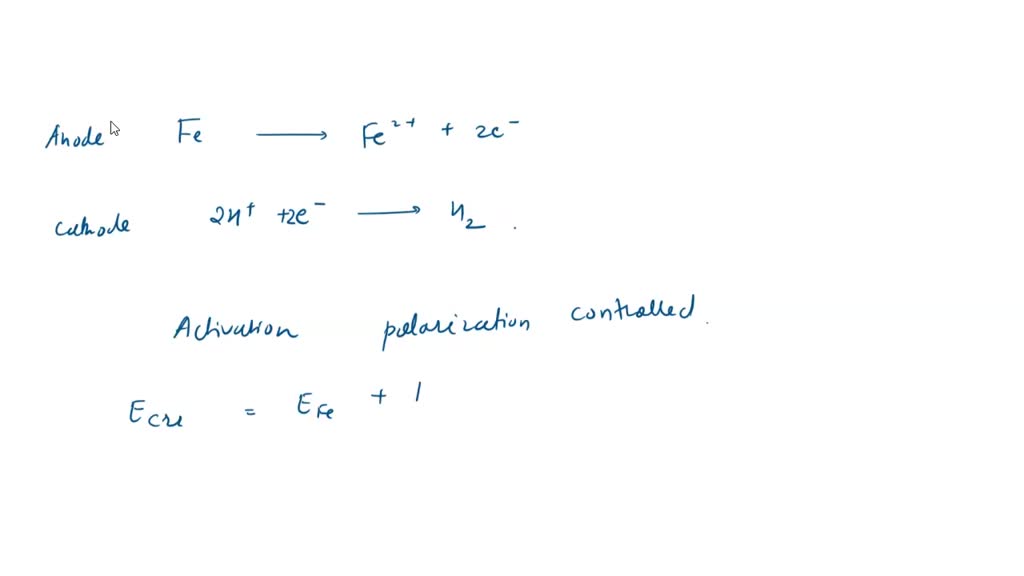 Anode Fe ⟶ Fe²⁺ + 2e⁻
Cathode 2H⁺ +2e⁻ ⟶ H₂ .
Activation polarization controlled .
E = E Fe +